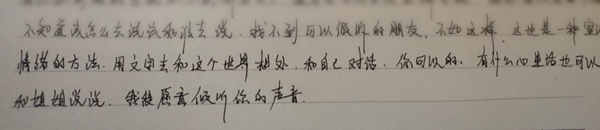 不知道该怎么去说说和谁去说. 找不到可以倾听的朋友. 不如这样. 这也是一种宣
情绪的方法. 用文字去和这个世界相处. 和自己对话. 你可以的. 有什么心里话也可以
和姐姐说说. 我很愿意倾听你的声音.